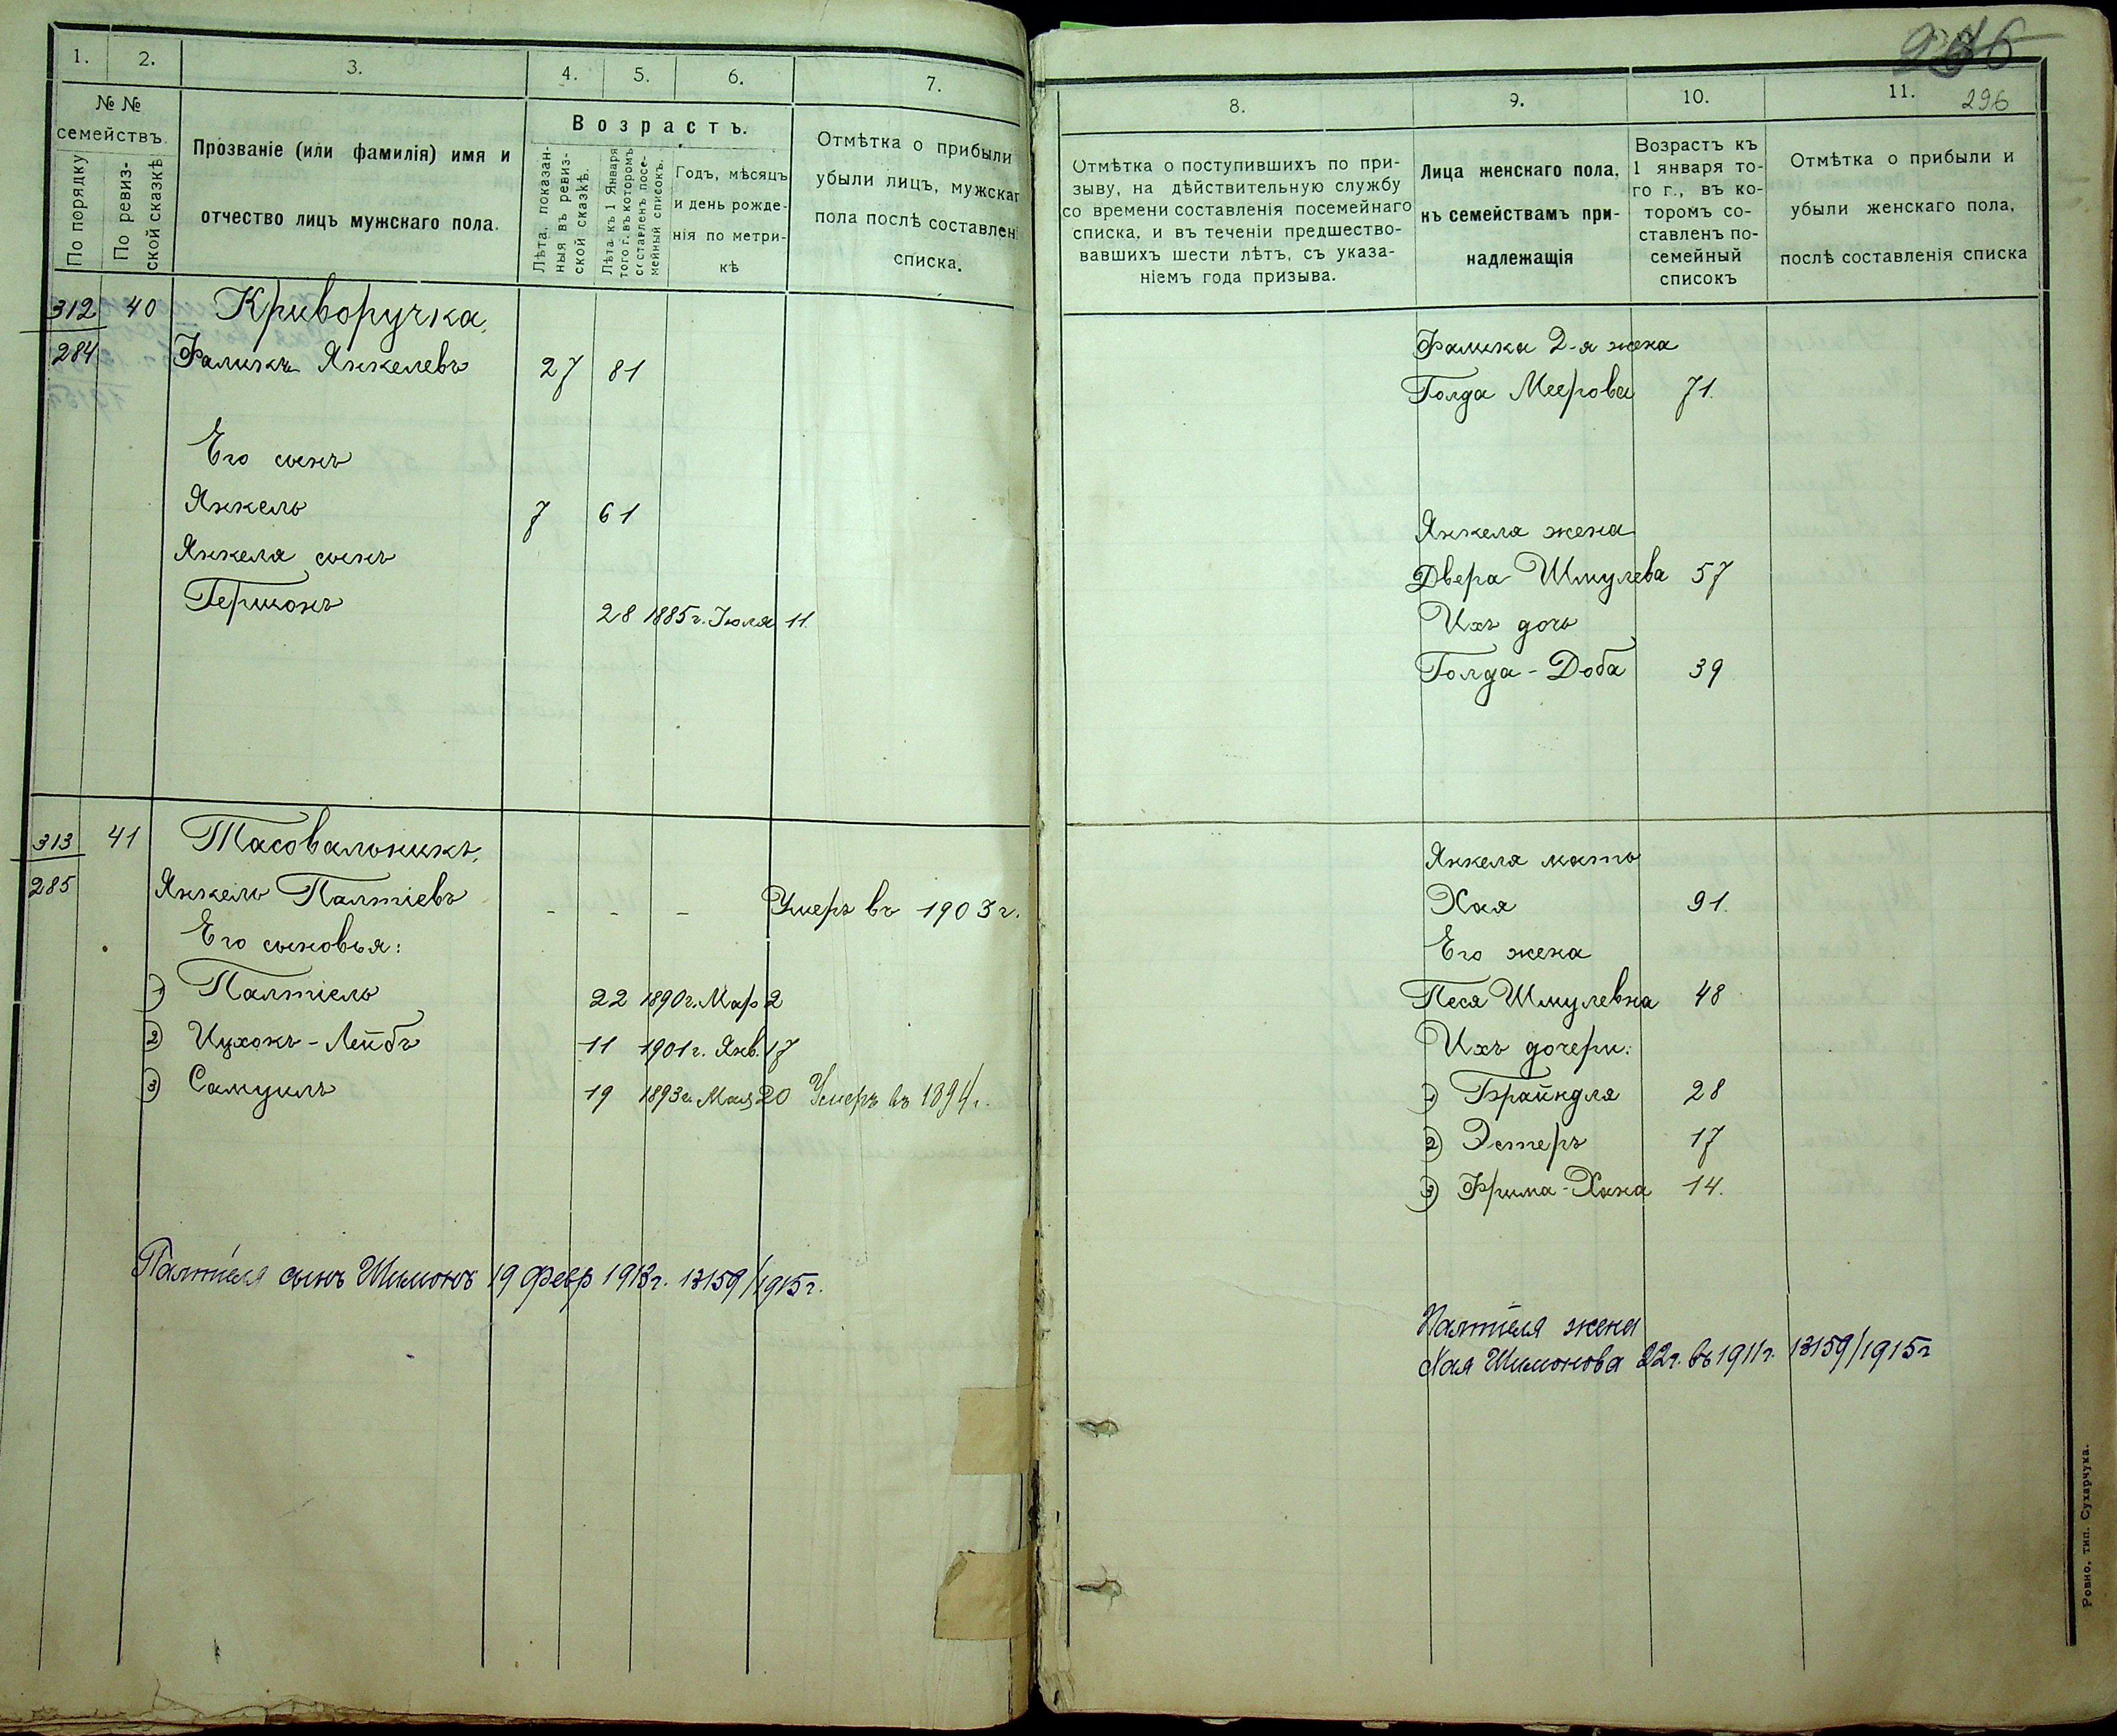 1. 2. 3. 4. 5. 6. 7.
№ №
семействъ
По порядку
По ревиз-
ской сказкѣ
Прозваніе (или фамилія) имя и
отчество лицъ мужскаго пола.
Возрастъ.
Лѣта, показан-
ныя въ ревиз-
ской сказкѣ.
Лѣта къ 1 Января
того г. въ которомъ
составленъ посе-
мейный списокъ.
Годъ, мѣсяцъ
и день рожде-
нія по метри-
кѣ
Отмѣтка о прибыли
убыли лицъ, мужскаг
пола послѣ составлен
списка.
312 40 Криворучка,
284 Фаликъ Янкелевъ 27 81
Его сынъ
Янкель 7 61
Янкеля сынъ
Гершонъ 28 1885 г. Іюля 11
313 41 Тасовальникъ,
285 Янкель Палтіевъ - - - Умеръ въ 1903 г.
Его сыновья:
1) Палтіель 22 1890 г. Мар 2
2) Ицхокъ-Лейбъ 11 1901 г. Янв. 17
3) Самуилъ 19 1893 г. Мая 20 Умеръ въ 1894 г.
Палтіеля сынъ Шимонъ 19 февр 1913 г. 13159/1915 г.
296
8. 9. 10. 11.
Отмѣтка о поступившихъ по при-
зыву, на дѣйствительную службу
со времени составленія посемейнаго
списка, и въ теченіи предшество-
вавшихъ шести лѣтъ, съ указа-
ніемъ года призыва.
Лица женскаго пола,
къ семействамъ при-
надлежащія
Возрастъ къ
1 января то-
го г., въ ко-
торомъ со-
ставленъ по-
семейный
списокъ
Отмѣтка о прибыли и
убыли женскаго пола,
послѣ составленія списка
Фалика 2-я жена
Голда Меерова 71.
Янкеля жена
Двера Шмулева 57
Ихъ дочь
Голда-Доба 39
Янкеля мать
Хая 91.
Его жена
Песя Шмулевна 48
Ихъ дочери:
1) Брайндля 28
2) Эстеръ 17
3) Фрима-Хана 14.
Палтіеля жена
Хая Шимонова 22 г. въ 1911 г. 13159/1915 г
Ровно, тип. Сухарчука.